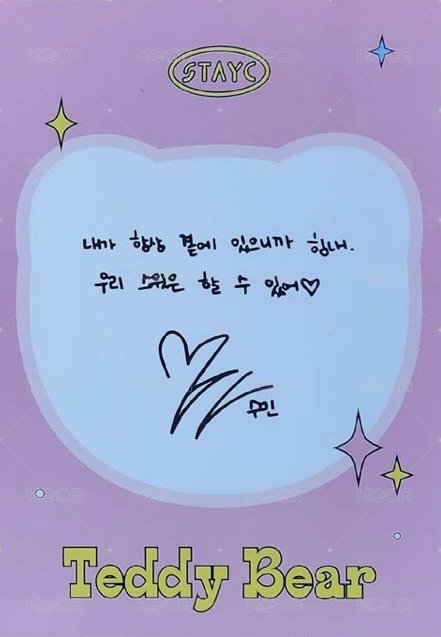 STAYC
내가 항상 곁에 있으니까 힘내.
우리 스윗은 할 수 있어♡
수민
Teddy Bear